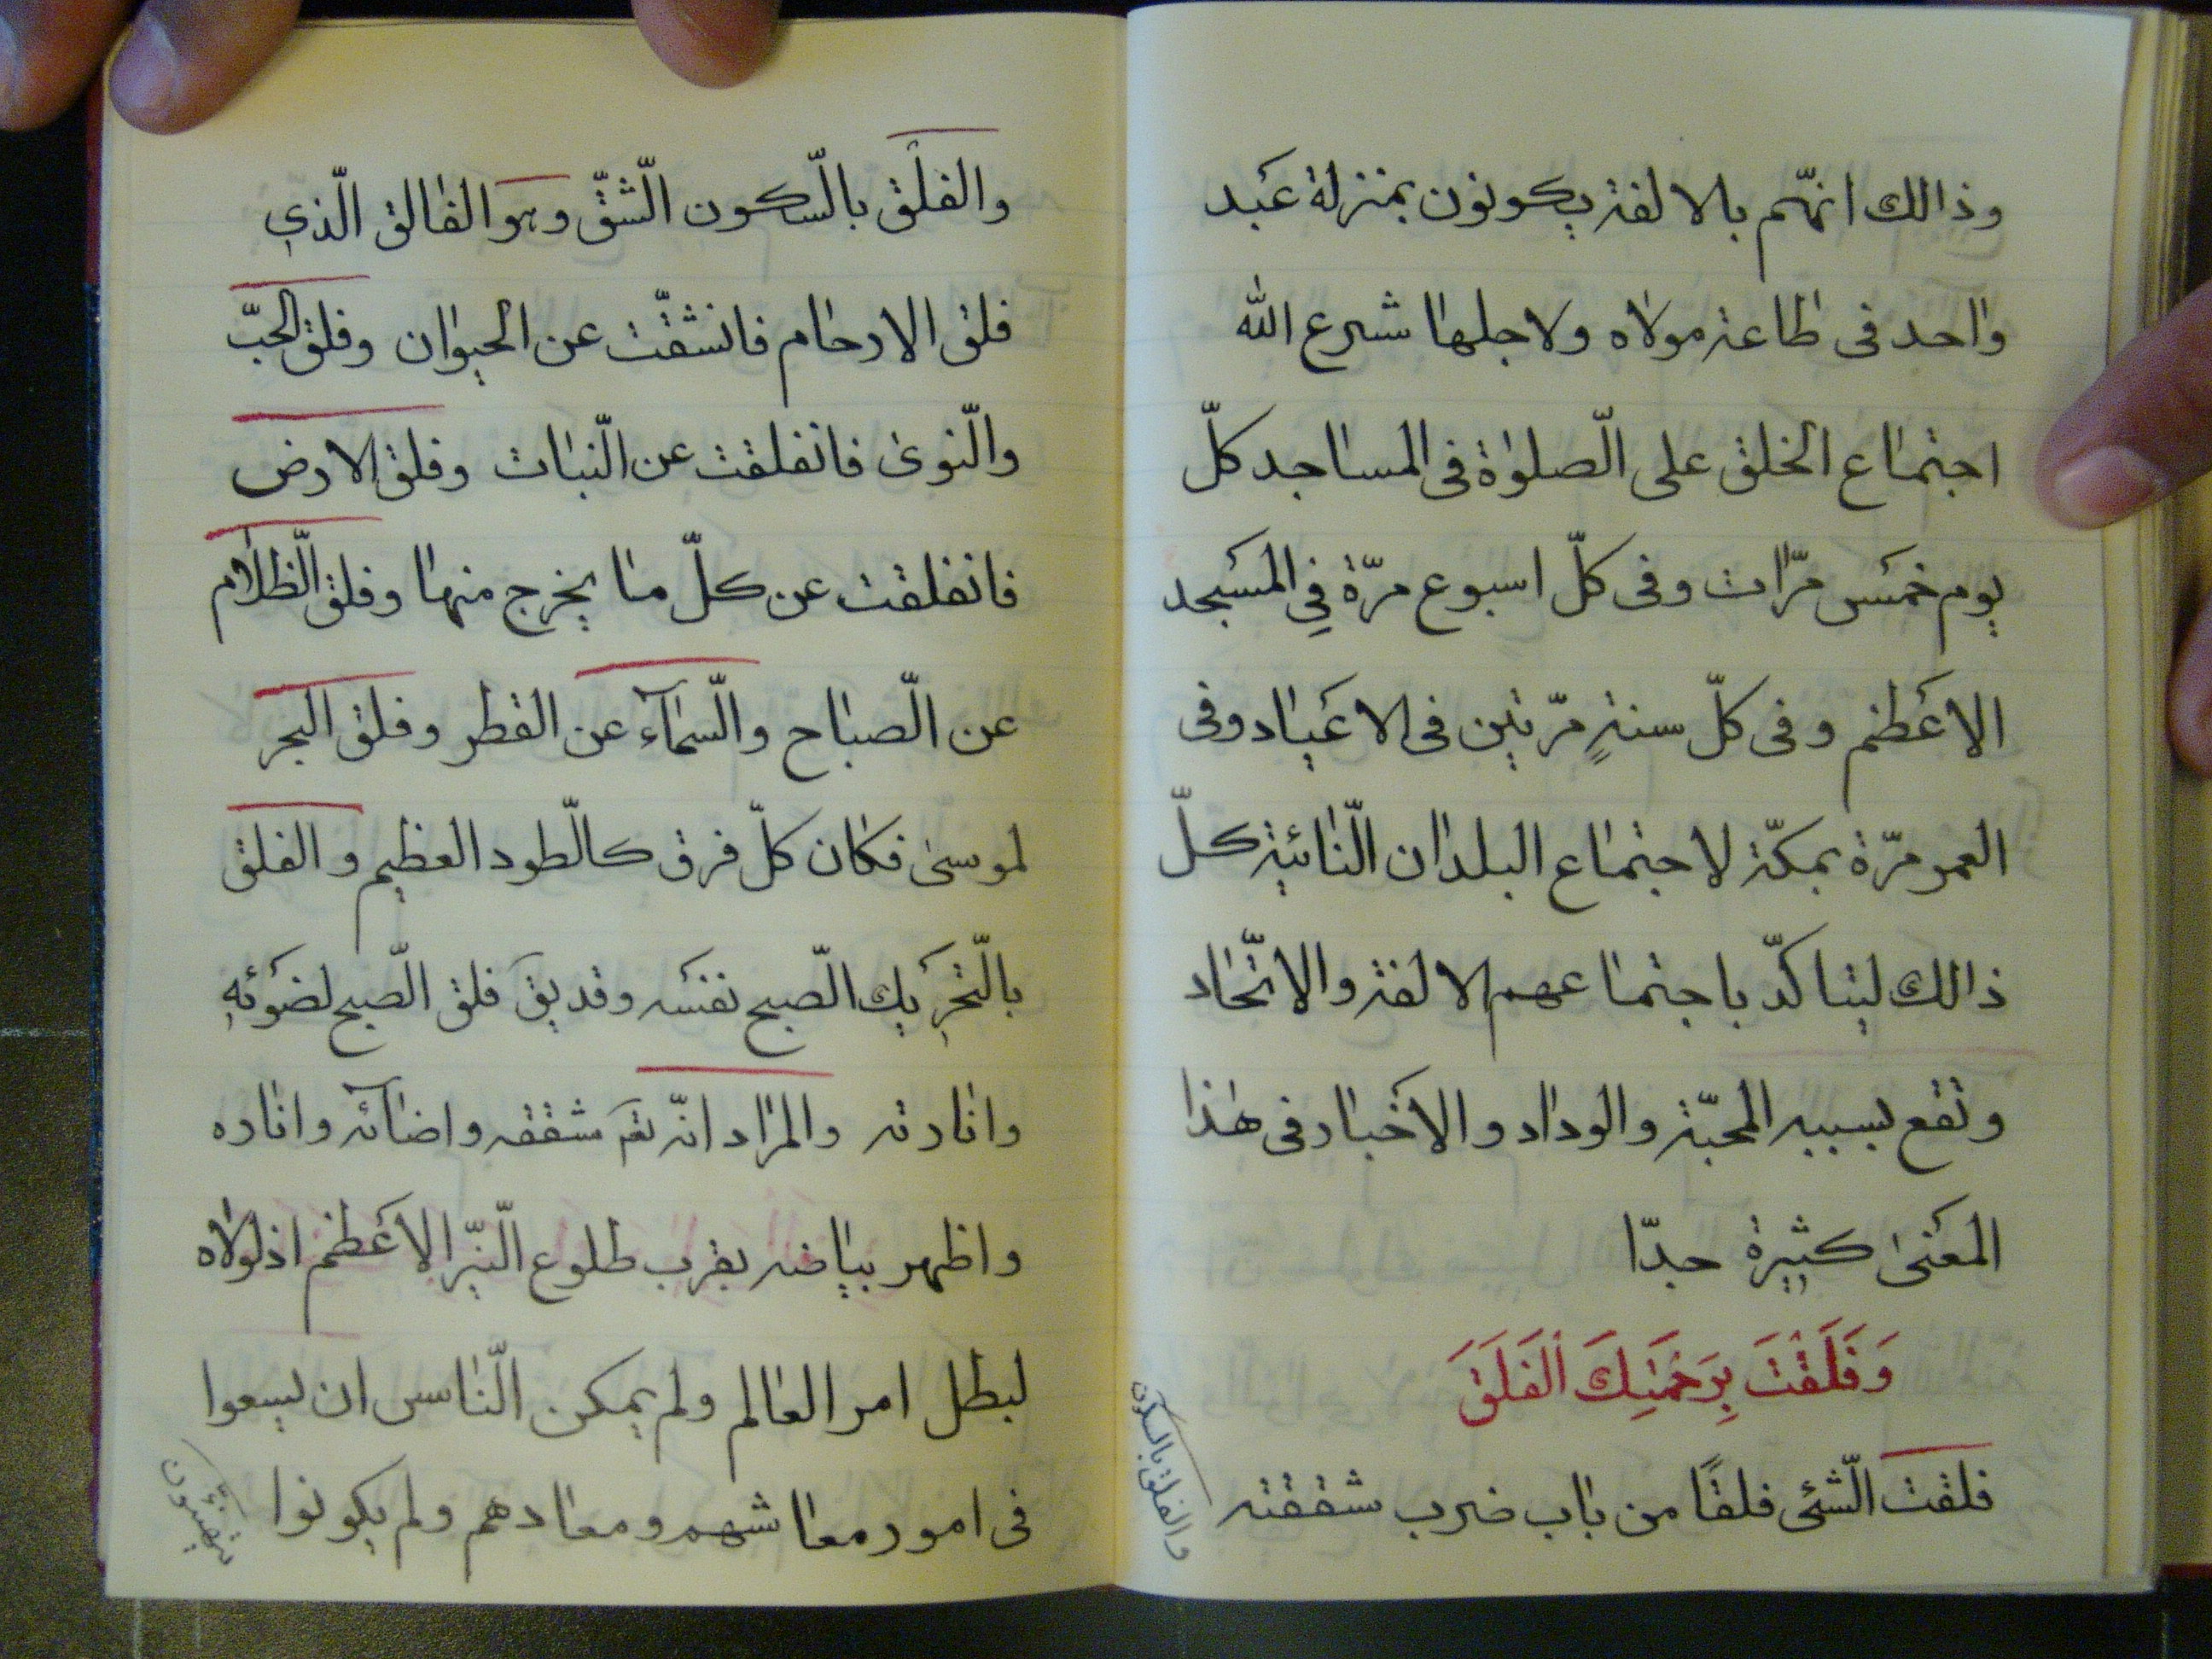 وذالك انهّم بلا لفة يكونون بمنزلة عَبد
واحد فى طاعة مولاه ولاجلها شرع الله
اجتماع الخلق على الّصلوٰة فى المساجد كلّ
يوم خمَس مرّات وفى كلّ اسبوع مرّة فِي المسَجد
الاعَظم وفى كلّ سنةٍ مرّتين فى الاعَياد وفى
العمر مرّة بمكّة لاجتماع البلدان الّنائية كلّ
ذالك ليتاكدّ باجتماعهم الالفة والاتّحاد
وتقع بسببه المحبّة والوداد والاخَبار فى هٰذا
المعَنىٰ كثيرة جدّا
وَفَلَقْتَ بِرَحْمَتِكَ الْفَلَقَ
فلقت الّشئ فلقًا من باب ضرب شققته
والفلق بالسكون
والفلْق بالّسكون الّشقّ وهو الفالق الّذي
فلق الارحام فانشقّت عن الحيوان وفلق الحبّ
والّنوىٰ فانفلقت عن الّنبات وفلق الارض
فانفلقت عن كلّ ما يخرج منها وفلق الّظلام
عن الّصباح والّسمآء عن القطر وفلق البحر
لموسىٰ فكان كلّ فرق كالّطود العظيم والفلق
بالّتحرَيك الّصبح نفسَه وقد يقَ فلق الّصبح لضوَئهِ
وانارته والمراد انّه تعَ شققه واضآئه واناره
واظهر بياضه بقرب طلوع الّنيّر الاعَظم اذ لولاه
لبطل امر العالم ولم يمكن الّناس ان يسعوا
فى امور معاشهم ومعادهم ولم يكونوا